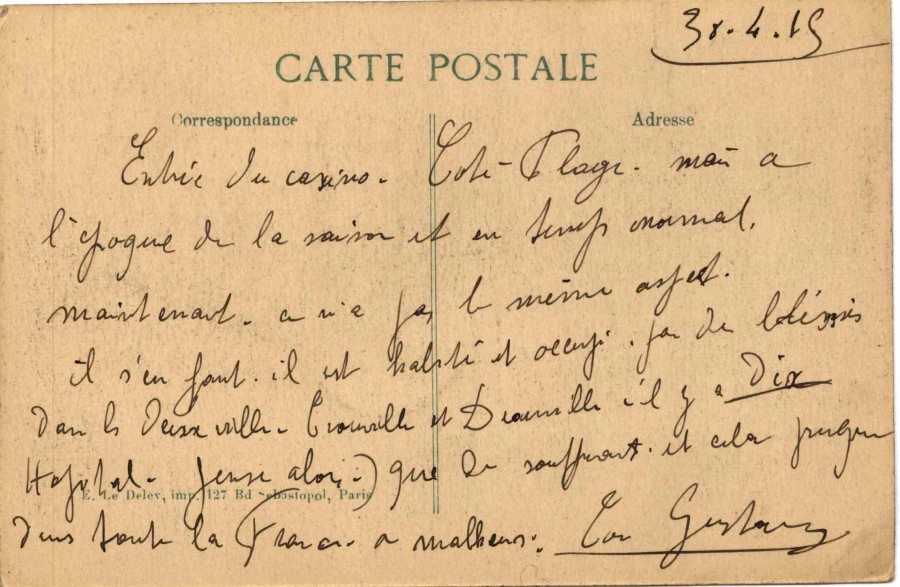 30.4.15
CARTE POSTALE
Correspondance
Adresse
Entrée du casino. Coté Plage. mais a
l'epoque de la saison et en temps normal.
maintenant. a n'a pas le même aspect.
il s'en faut. il est habité et occupé. par des bléssés
Dans les Deux ville. Trouville et Deauville il y a Dix
Hopital. pense alors.) que de souffrant. et cela presque
E. Le Deley, imp. 127 Bd Sébastopol, Paris
dans toute la France. a malheur. Ton Gustave